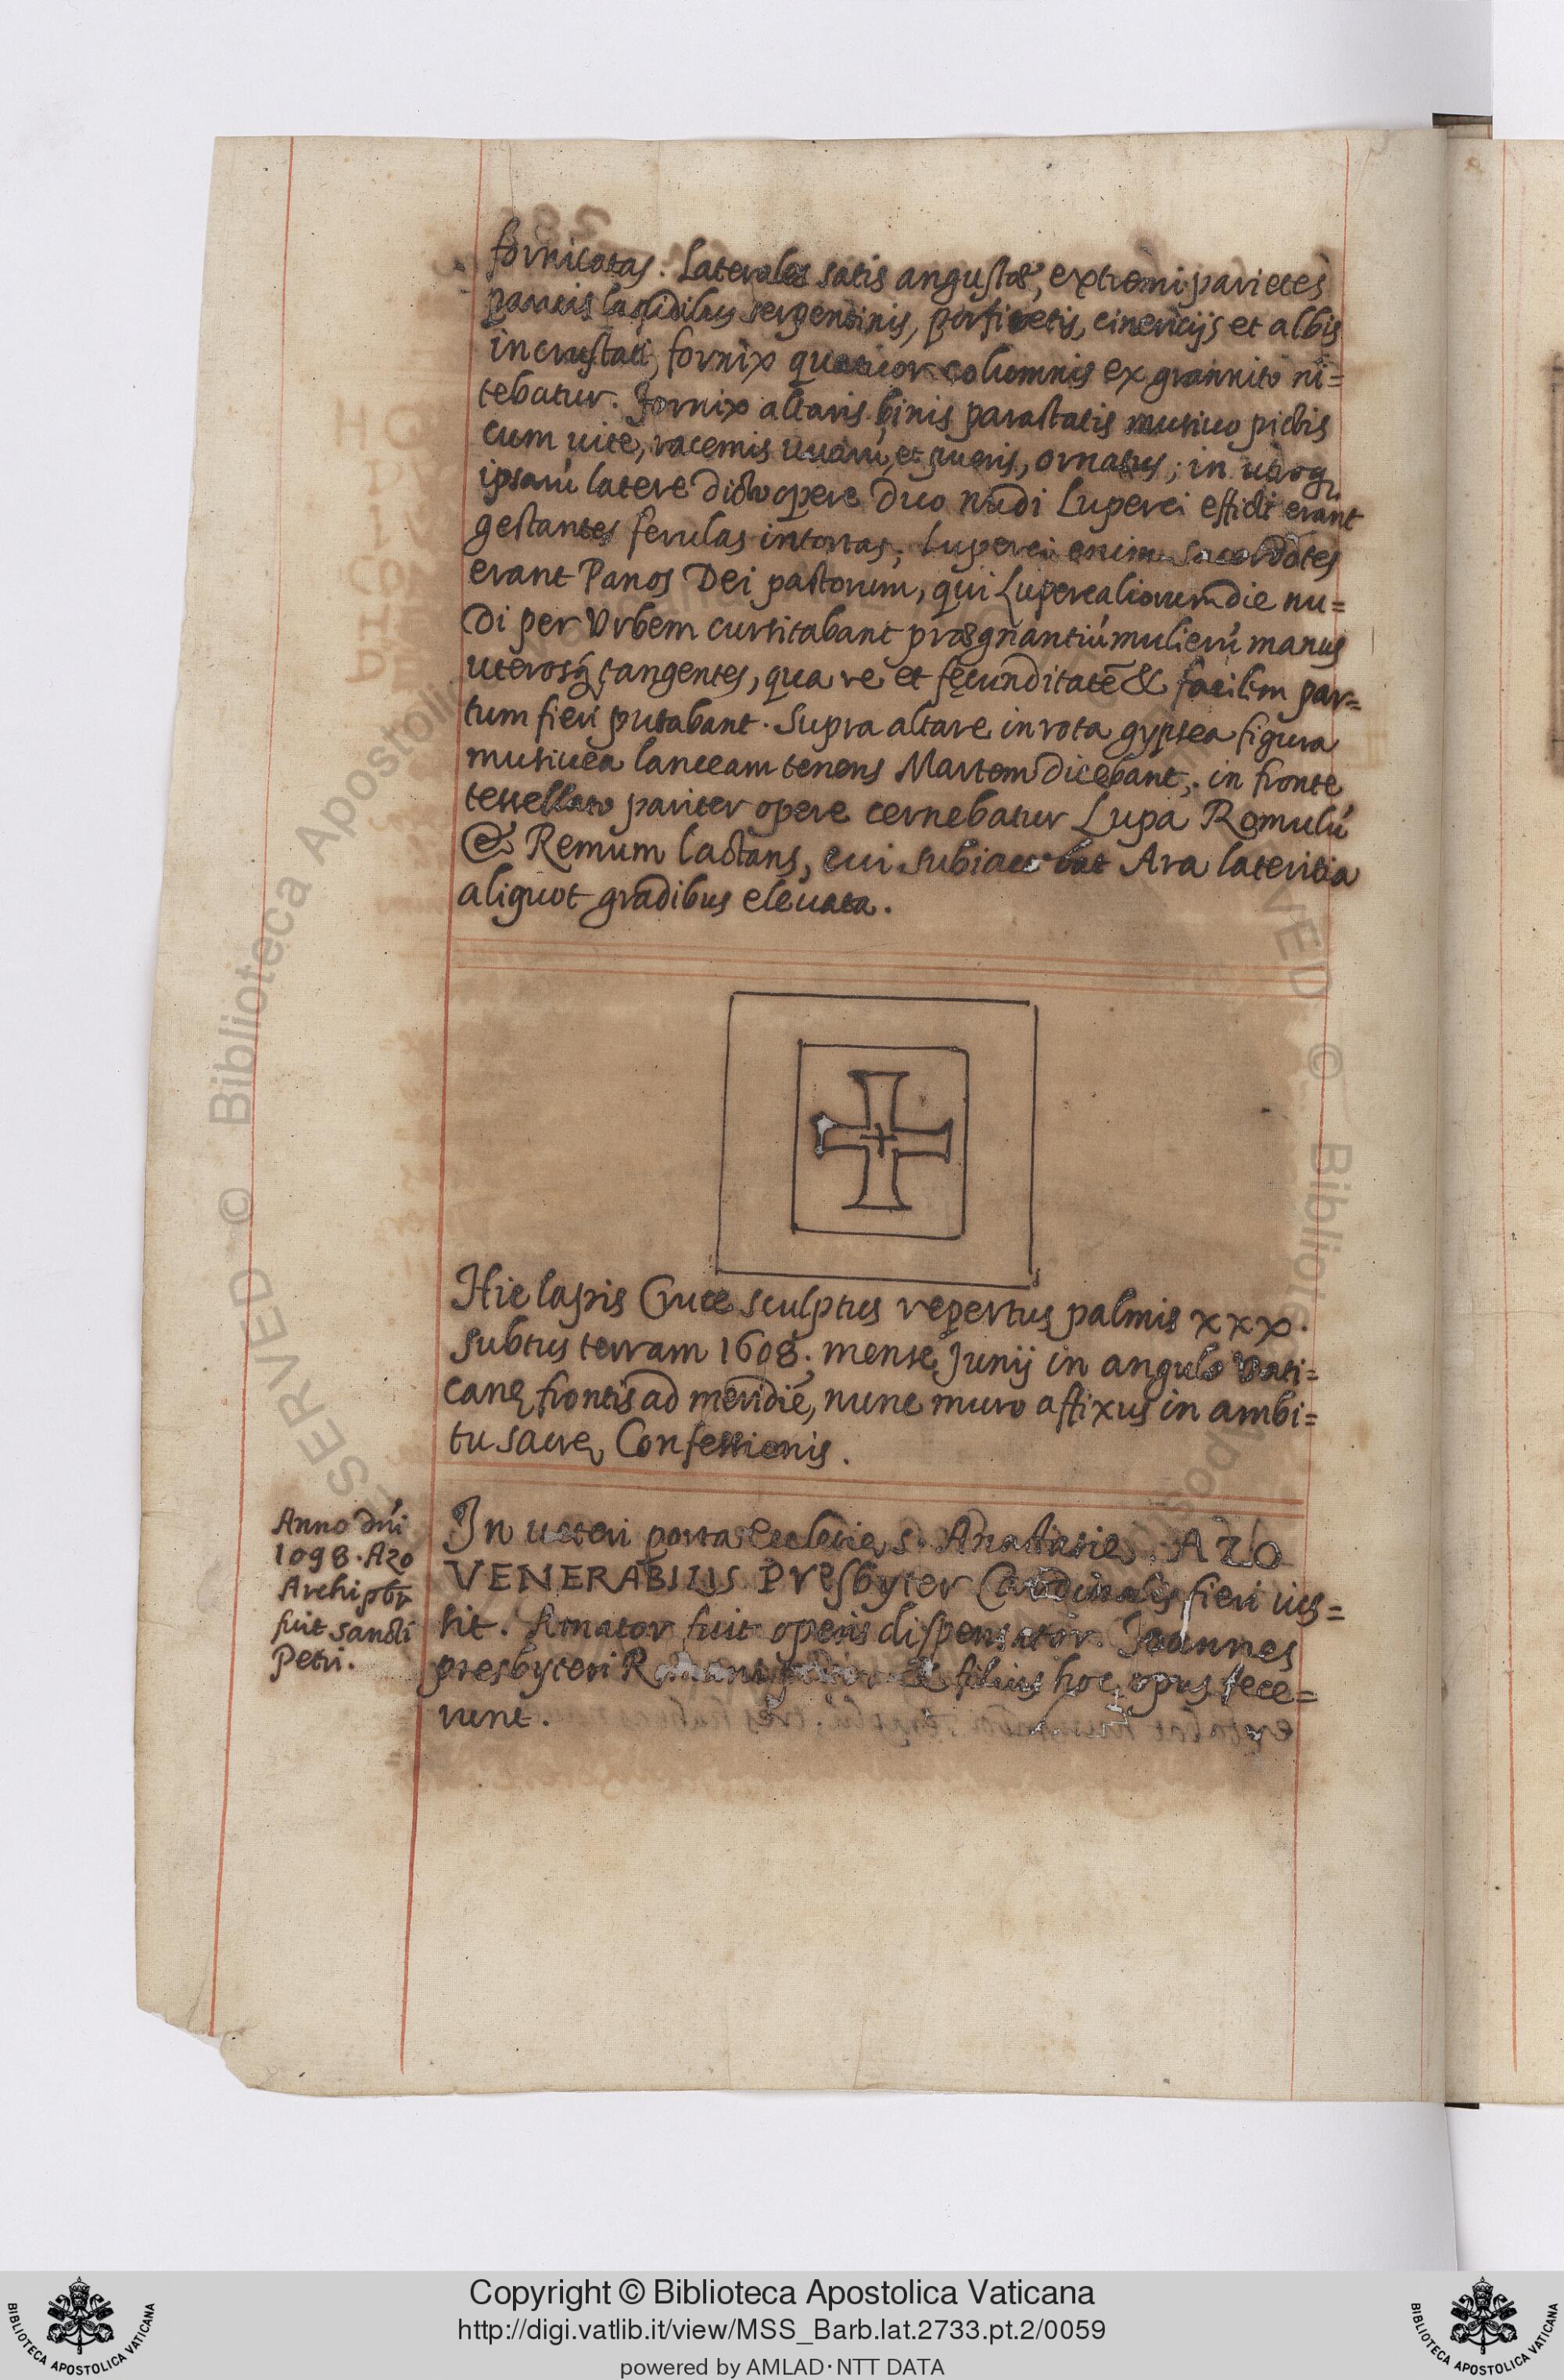 fornicatas. Laterales satis angustæ, extremi parietes
paucis lapidibus serpentinis, porfiretis, cinericijs et albis
incrustati, fornix quatuor columnis ex grannito ni=
tebatur. Fornix altaris binis parastatis musiuo pictis
cum uite, racemis uuarũ, et pueris, ornatus; in utroq;
ipsarũ latere dicto opere duo nudi Luperci efficti erant
gestantes ferulas intortas; Luperci enim sacerdotes
erant Panos Dei pastorum, qui Lupercaliorum die nu=
di per Vrbem cursitabant prægnantiũ mulierũ manus
uterosq́; tangentes, qua re et fęcunditatẽ & facilem par=
tum fieri putabant. Supra altare in rota gypsea figura
musiuea lanceam tenens Martem dicebant; in fronte
tessellato pariter opere cernebatur Lupa Romulũ
& Remum lactans, cui subiacebat Ara lateritia
aliquot gradibus eleuata.
Hic lapis Cruce sculptus repertus palmis xxx.
subtus terram 1608. mense Junij in angulo Vati=
canę frontis ad meridiẽ, nunc muro affixus in ambi=
tu sacrę Confessionis.
Anno dñi
1098. Azo
Archipbr
fuit sancti
Petri.
In ueteri porta Ecclesię s. Anastasię. AZO
VENERABILIS PResbyter Cardinalis fieri ius=
sit. Amator fuit operis dispensator. Joannes
presbyteri Romani & filius hoc opus fece=
runt.
Copyright © Biblioteca Apostolica Vaticana
http://digi.vatlib.it/view/MSS_Barb.lat.2733.pt.2/0059
powered by AMLAD·NTT DATA
BIBLIOTECA APOSTOLICA VATICANA
BIBLIOTECA APOSTOLICA VATICANA